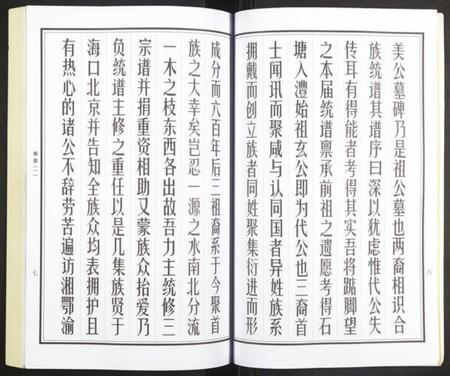 美公墓碑乃是祖公墓也两裔相识合
族统谱其谱序曰深以犹虑惟代公失
传耳有得能者考得其实吾将踮脚望
之本届统谱禀承前祖之遗愿考得石
塘入澧始祖玄公即为代公也三裔首
士闻讯而聚咸与认同国者异姓族系
拥戴而创立族者同姓聚集衍进而形
六
成分而六百年后三祖裔系于今聚首
族之大幸矣岂忍一源之水南北分流
一木之枝东西各出故吾力主统修三
宗谱并捐重资相助又蒙族众抬爱乃
负统谱主修之重任以是几集族贤于
海口北京并告知全族众均表拥护且
有热心的诸公不辞劳苦遍访湘鄂渝
七